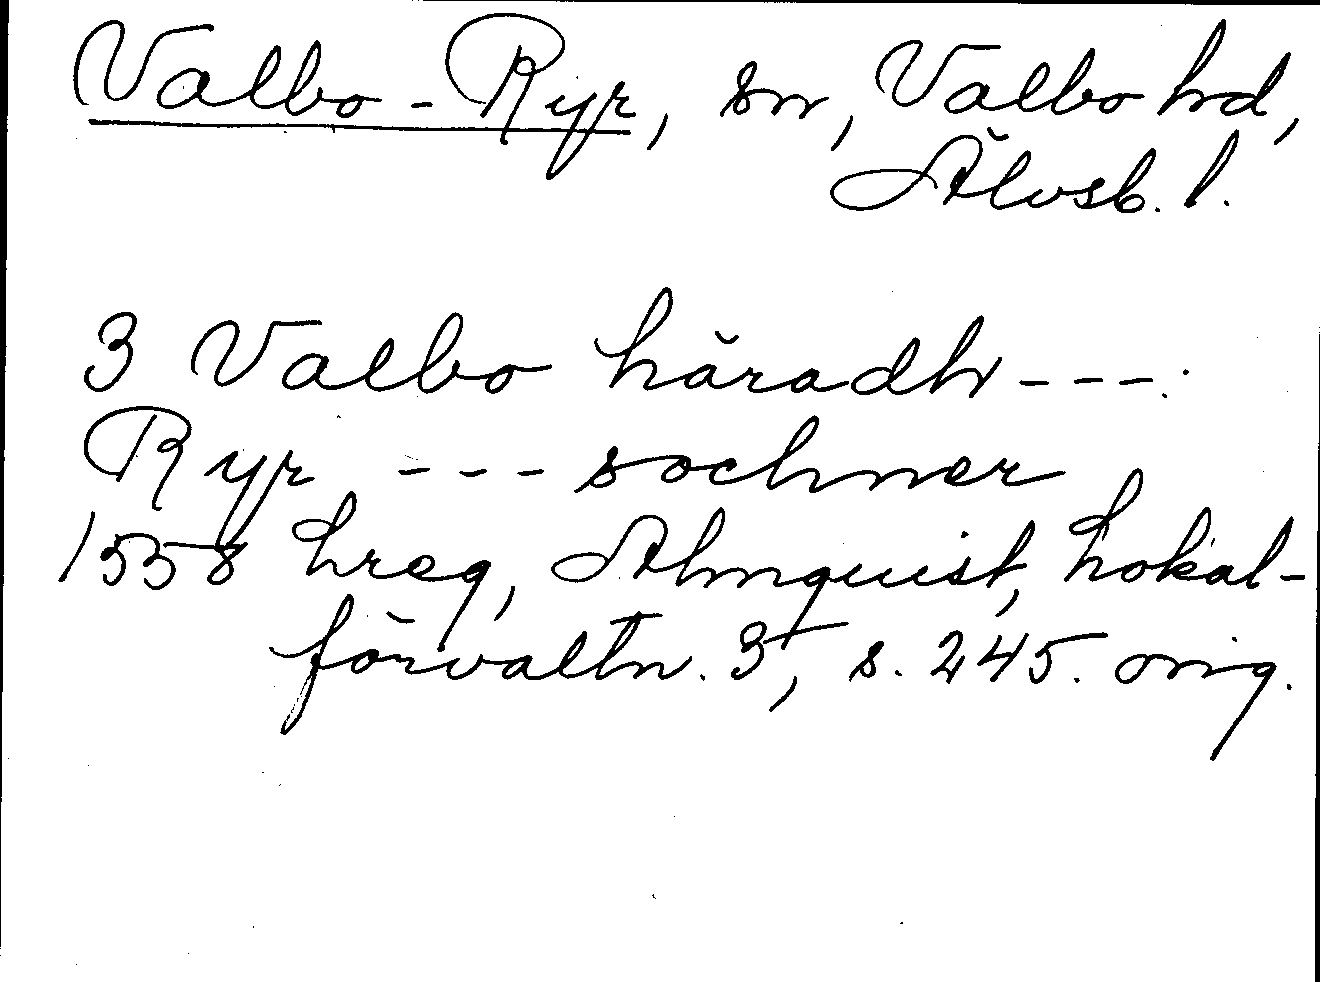 Valbo-Ryr, sn, Valbo hd,
Älvsb. l.
3 Valbo häradh ---.
Ryr --- sochner
1558 hreg, Almquist, Lokal-
förvaltn. 3, s. 245. orig.